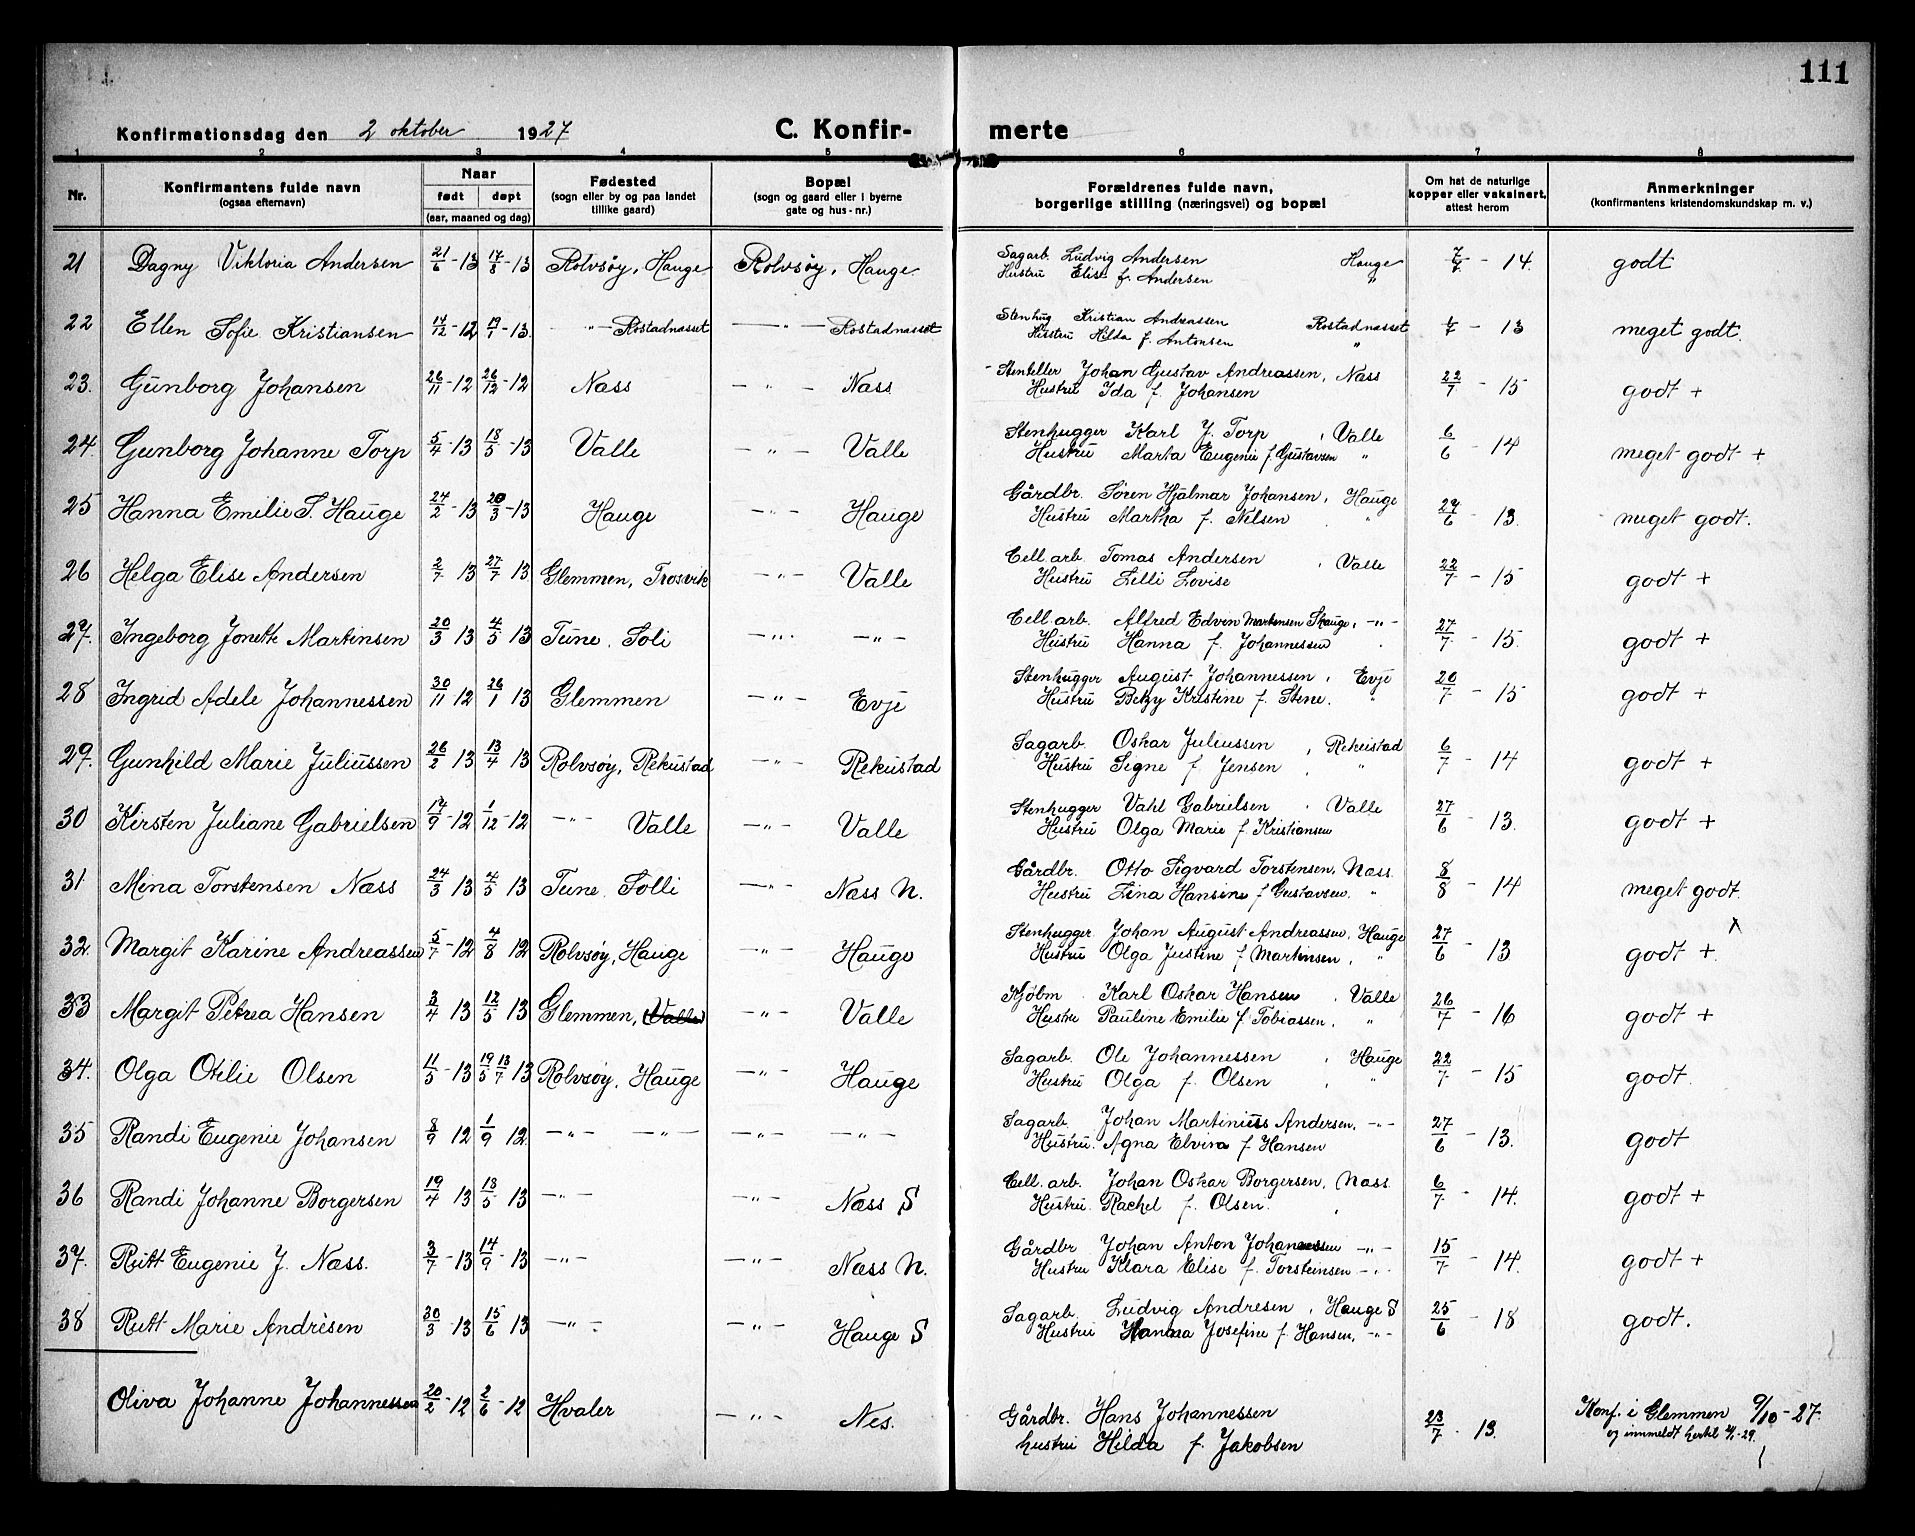 111
Konfirmationsdag den 2 oktober 1927 C. Konfir- merte
1 2 3 4 5 6 7 8
Nr. Konfirmantens fulde navn (ogsaa efternavn) Naar født døpt (aar, maaned og dag) Fødested (sogn eller by og paa landet tillike gaard) Bopæl (sogn og gaard eller i byerne gate og hus-nr.) Forældrenes fulde navn, borgerlige stilling (næringsvei) og bopæl Om hat de naturlige kopper eller vaksinert, attest herom Anmerkninger (konfirmantens kristendomskundskap m. v.)
21 Dagny Viktoria Andersen 21/6 - 13 17/8 - 13 Rolvsøy, Hauge Rolvsøy, Hauge Sagarb. Ludvig Andersen Hauge 7/7 - 14. godt
Hustru Elise f. Andersen "
22 Ellen Sofie Kristiansen 14/12 - 12 19/1 - 13. - " - Rostadnasset - " - Rostadnasset Stenhug Kristian Andreassen Rostadnasset 4/7 - 13 meget godt.
Hustru Hilda f. Antonsen "
23. Gunborg Johansen 26/11 - 12 26/12 - 12 Næss - " - Næss. Stenteller Johan Gustav Andreassen, Næss 22/7 - 15 godt +
Hustru Ida f. Johansen
24. Gunborg Johanne Torp 5/4 - 13 18/5 - 13 Valle - " - Valle Stenhugger Karl J. Torp, Valle 6/6 - 14 meget godt +
Hustru Marta Eugenie f. Gustavsen "
25 Hanna Emilie S. Hauge 24/2 - 13 20/3 - 13 Hauge - " - Hauge Gårdbr. Søren Hjalmar Johansen, Hauge 24/6 - 13. meget godt.
Hustru Martha f. Nilsen "
26 Helga Elise Andersen 2/7 13 27/7 13 Glemmen, Trosvik - " - Valle Cell. arb. Tomas Andersen, Valle 22/7 - 15 godt +
Hustru Lilli Lovise
27. Ingeborg Jonette Martinsen 20/3 13 4/5 13 Tune. Soli - " - - " - Cell arb. Alfred Edvin Martinsen Skauge, - " - 27/7 - 15. godt +
Hustru Hanna f. Johannessen
28 Ingrid Adele Johannessen 30/11 12 26/1 13 Glemmen - " - Evje Stenhugger August Johannessen, Evje 20/7 - 15 godt +
Hustru Betzy Kristine f. Stene. "
29. Gunhild Marie Juliussen 26/2 13 13/4 13 Rolvsøy, Rekustad - " - Rekustad Sagarb. Oskar Juliussen, Rekustad 6/7 - 14 godt +
Hustru Signe f. Jensen, "
30 Kirsten Juliane Gabrielsen 17/9 - 12 1/12 - 12 - " - Valle - " - Valle Stenhugger Vahl Gabrielsen, Valle 27/6 - 13. godt +
Hustru Olga Marie f. Kristiansen
31. Mina Torstensen Næss 24/3 13 4/5 13 Tune. Solli - " - Næss N. Gårdbr. Otto Sigvard Torstensen, Næss. 8/8 - 14 meget godt.
Hustru Lina Hansine f. Gustavsen. "
32. Margit Karine Andreassen 5/7 - 12 4/8 12 Rolvsøy, Hauge - " - Hauge Stenhugger Johan August Andreassen, Hauge 27/6 - 13 godt +. x
Hustru Olga Justine f. Martinsen, "
33 Margit Petrea Hansen 3/4 13 12/5 13 Glemmen, (Valle) - " - Valle Kjøbm. Karl Oskar Hansen, Valle 26/7 - 16 godt +
Hustru Pauline Emilie f. Tobiassen, "
34. Olga Otilie Olsen 11/5 - 13 19/5 13/7 13 Rolvsøy, Hauge - " - Hauge Sagarb. Ole Johannessen, Hauge 22/7 - 15 godt.
Hustru Olga f. Olsen, "
35 Randi Eugenie Johansen 8/9 12 1/9 12. - " - - " - - " - - " - Sagarb. Johan Martinius Andersen. - " - 27/6 - 13. godt
Hustru. Agna Elvira f. Hansen
36 Randi Johanne Borgersen 19/4 13 18/5 13 - " - - " - Næss S Cell. arb. Johan Oskar Borgersen, Næss. 6/7 - 14. godt +
Hustru. Rachel f. Olsen.
37. Rutt Eugenie J. Næss. 3/7 - 13 14/9 - 13 - " - - " - Næss N. Gårdbr Johan Anton Johannessen - " - 15/7 - 14. godt +
Hustru Klara Elise f. Torsteinsen - " -
38 Rutt Marie Andrèsen 30/3 - 13 15/6 13 - " - - " - Hauge S Sagarb. Ludvig Andresen, Hauge S 25/6 - 18 godt.
Hustru Hanna Josefine f. Hansen, - " -
Oliva Johanne Johannessen 20/2 - 12 2/6 - 12 Hvaler - " - Nes. Gårdbr. Hans Johannessen 23/7 - 13. Konf. i Glemmen 9/10 - 27.
hustru Hilda f. Jakobsen og innmeldt hertil 4/1 - 29.